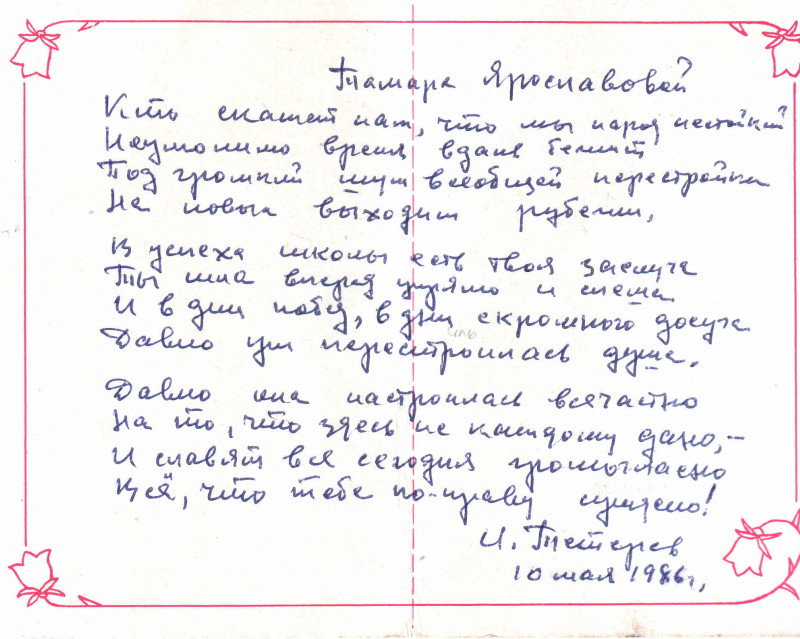 Тамаре Ярославовой
Кто скажет нам, что мы народ нестойкий
Неумолимо время вдаль бежит
Под громкий шум всеобщей перестройки
На новые выходит рубежи.
В успехе школы есть твоя заслуга
Ты шла вперед упрямо и спеша
И в дни побед, в дни скромного досуга
Давно уж перестроилась душа.
Давно она настроилась всечастно
На то, что здесь не каждому дано,–
И славят все сегодня громогласно
Всё, что тебе по-праву суждено!
И. Тетерев
10 мая 1986 г,